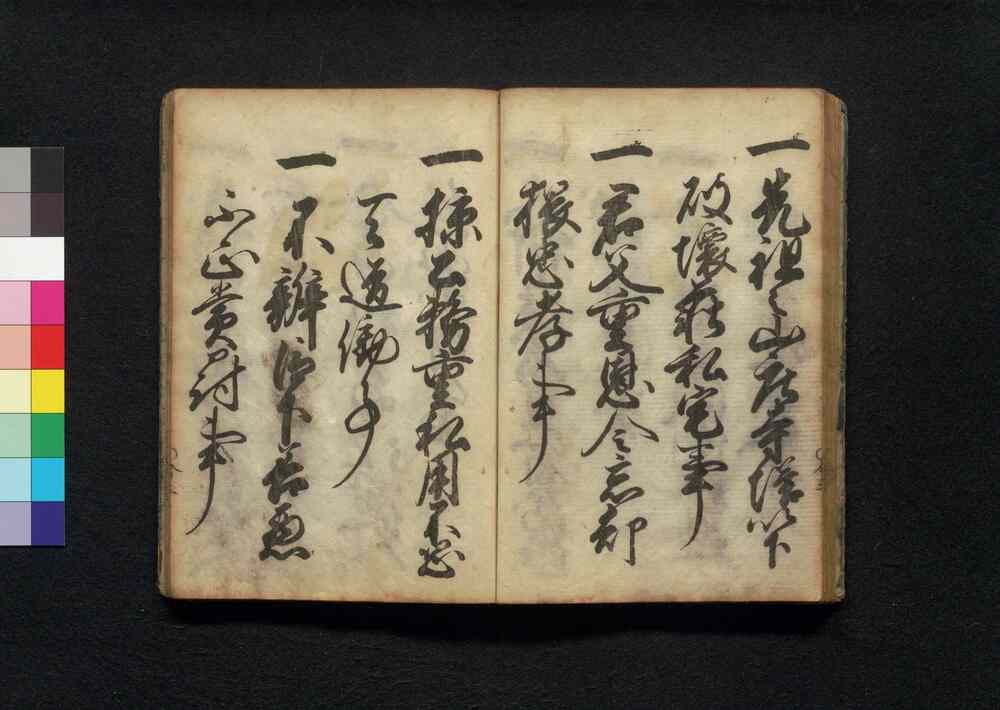 一先祖之山庄寺塔以下
破壊荘私宅事
一君父重恩令忘却
猥忠孝事
一掠公務重私用不恐
天道働事
一不辨臣下善悪
不正賞罰事